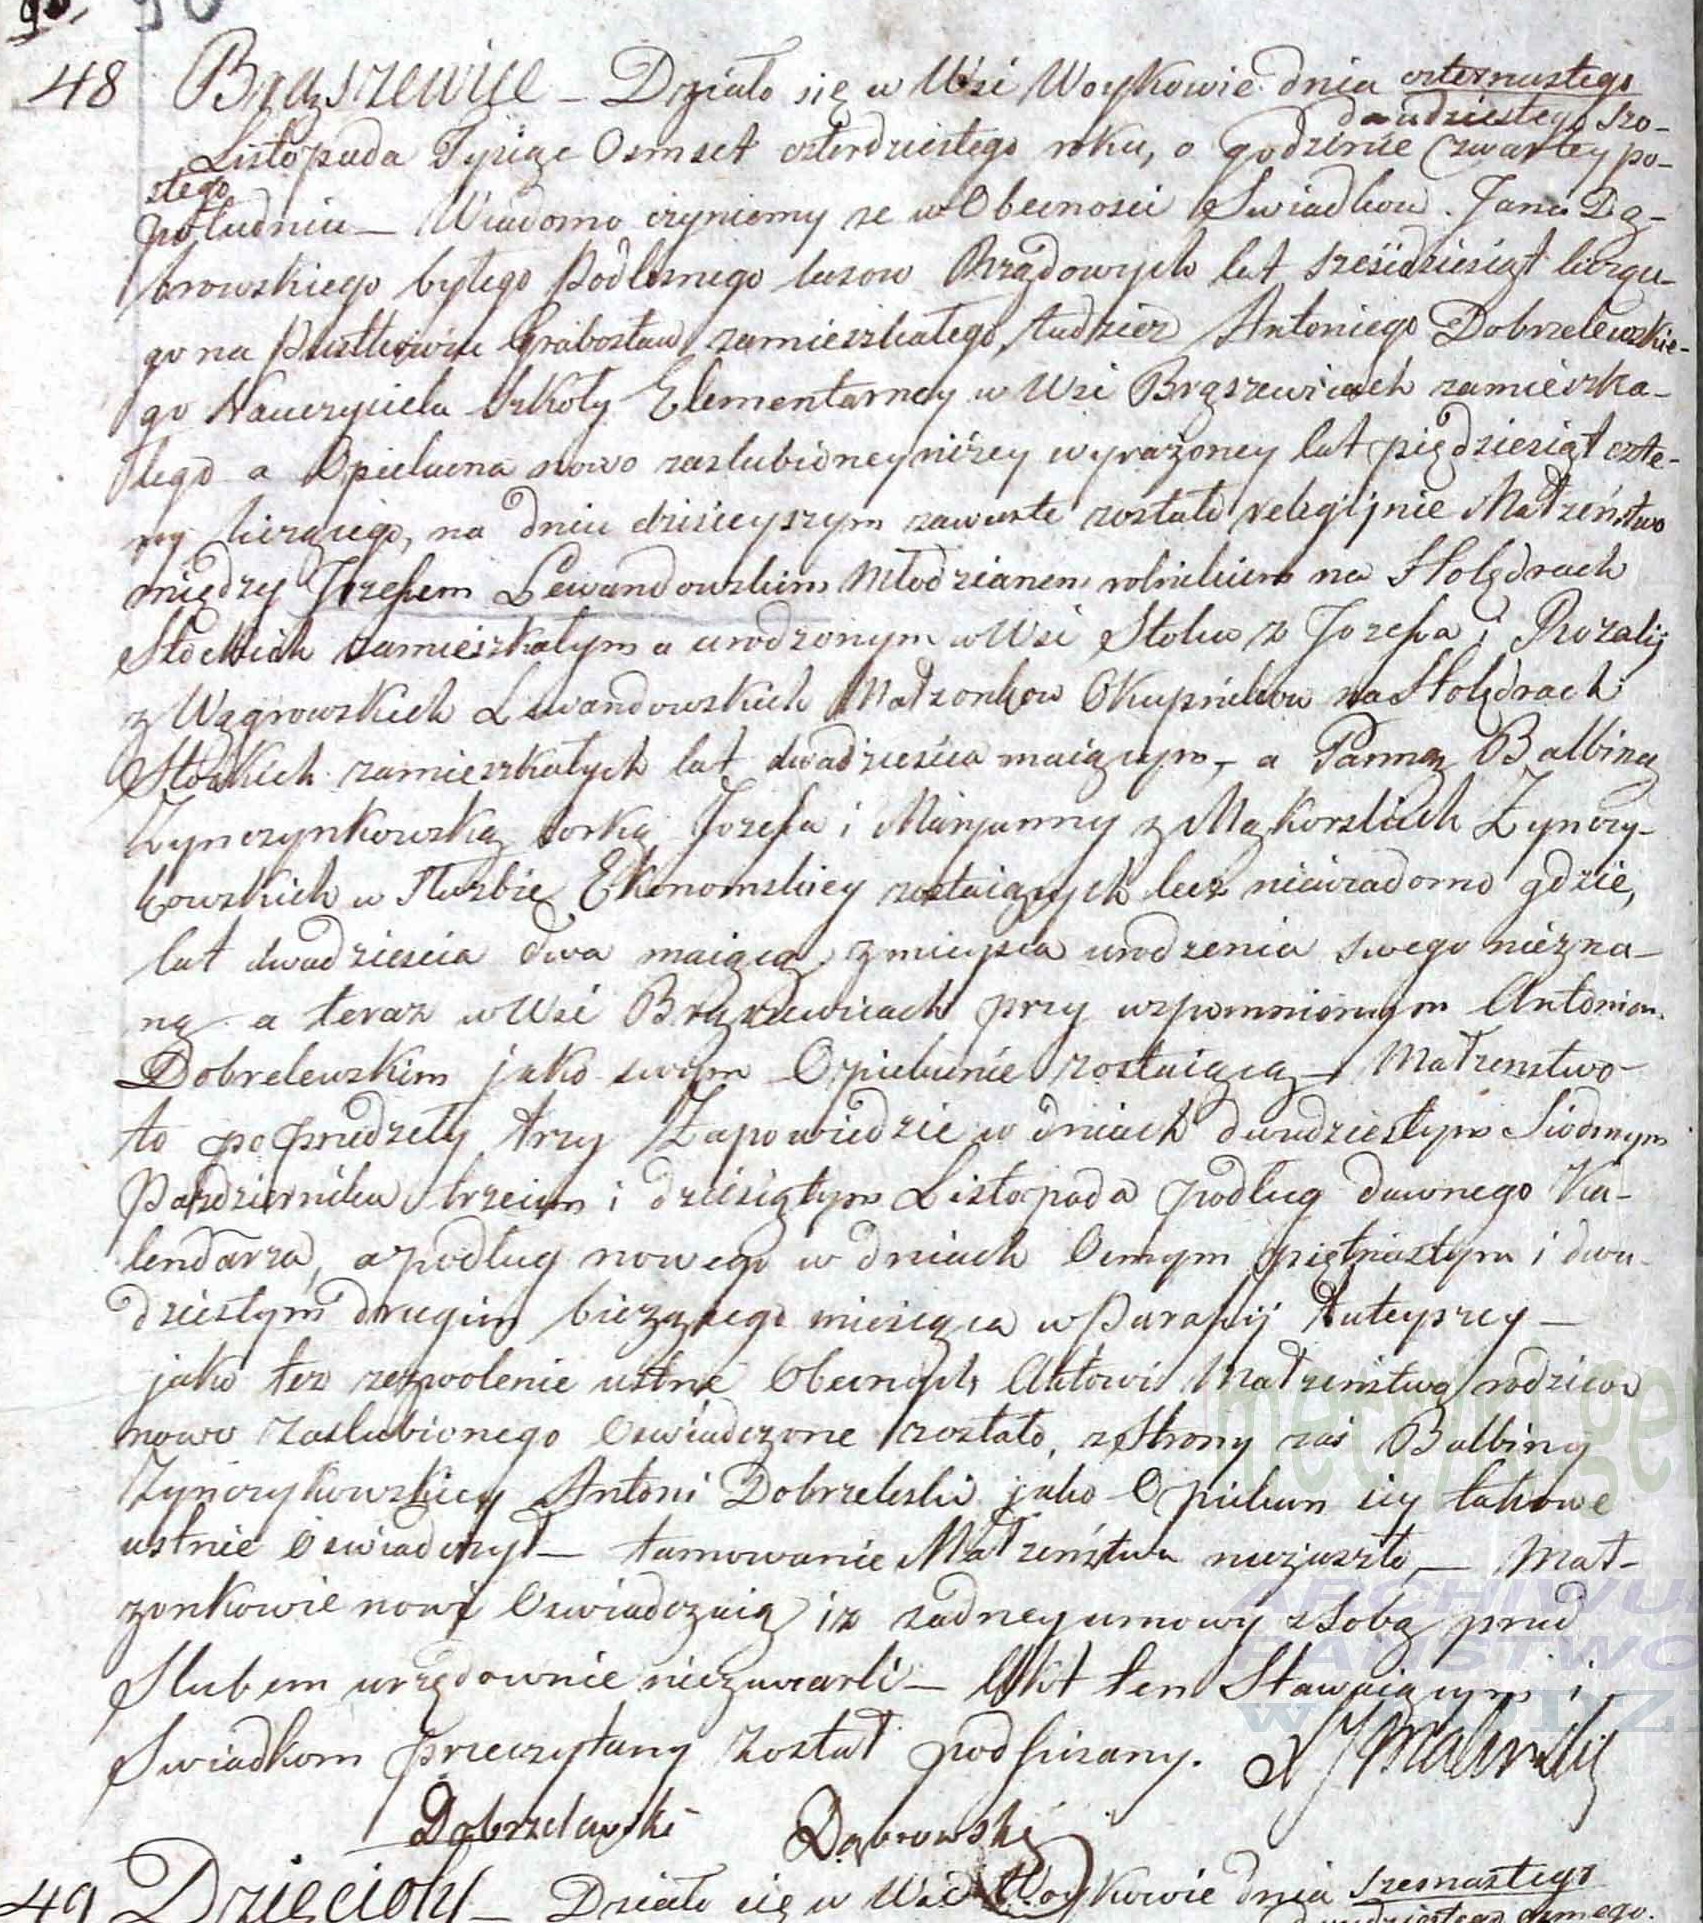 48 Brąszewice – Działo się w Wsi Woykowie dnia czternastego
dwudziestego szo-
Listopada Tysiąc Osmset czterdziestego roku, o godzinie czwartey po-
stego
południu – Wiadomo czyniemy ze w Obecnosci Swiadkow Jana Dą-
browskiego byłego Podlesnego lasow Rządowych lat sześćdziesiąt liczące-
go na Pustkowiu Grabostaw zamieszkałego, tudzież Antoniego Dobrzelewskie-
go Nauczyciela Szkoły Elementarney w Wsi Brąszewicach zamieszka-
łego a Opiekuna nowo zaslubioney niżey wyrażoney lat pięćdziesiąt czte-
ry liczącego, na dniu dzisieyszym zawarte zostało religijnie Małżeństwo
między Jozefem Lewandowskim Młodzianem rolnikiem na Holędrach
Stockich zamieszkałym a urodzonym w Wsi Stoku z Jozefa i Rozalij
z Wągrowskich Lewandowskich Małzonkow Okupnikow na Holędrach
Stockich zamieszkałych lat dwadzieścia maiącym, – a Panną Balbiną
Zynczynkowską corką Jozefa i Maryanny z Mąkorskich Zynczy-
kowskich w Służbie Ekonomskiey zostaiących lecz niewiadomo gdzie,
lat dwadzieścia dwa maiącą, z mieysca urodzenia swego niezna-
ną a teraz w Wsi Brąszewicach przy wspomnionym Antonim
Dobrelewskim jako swym Opiekunie zostaiącą – Małżenstwo
to poprzedzeły trzy Zapowiedzie w dniach dwudziestym Siodmym
Pazdziernika trzecim i dziesiątym Listopada podług dawnego Ka-
lendarza, a podług nowego w dniach Osmym piętnastym i dwu-
dziestym drugim bieżącego miesiąca w Parafij tuteyszey –
jako tez zezwolenie ustne Obecnych Aktowi Małżeństwa rodzicow
nowo zaslubionego Oswiadczone zostało, z Strony zaś Balbiny
Zynczykowskiey Antoni Dobrzeleski jako Opiekun iey takowe
ustnie Oswiadczył – tamowanie Małżeństwa niezaszło, – Mał-
zonkowie nowi Oswiadczaią iz zadney umowy z Sobą przed
Slubem urzędownie niezawarli – Akt ten Stawaiącym i
Swiadkom przeczytany został podpisany.
Dobrzelewski Dąbrowski
49 Dzięcioły – Działo się w Wsi Woykowie dnia szesnastego
dwudziestego osmego